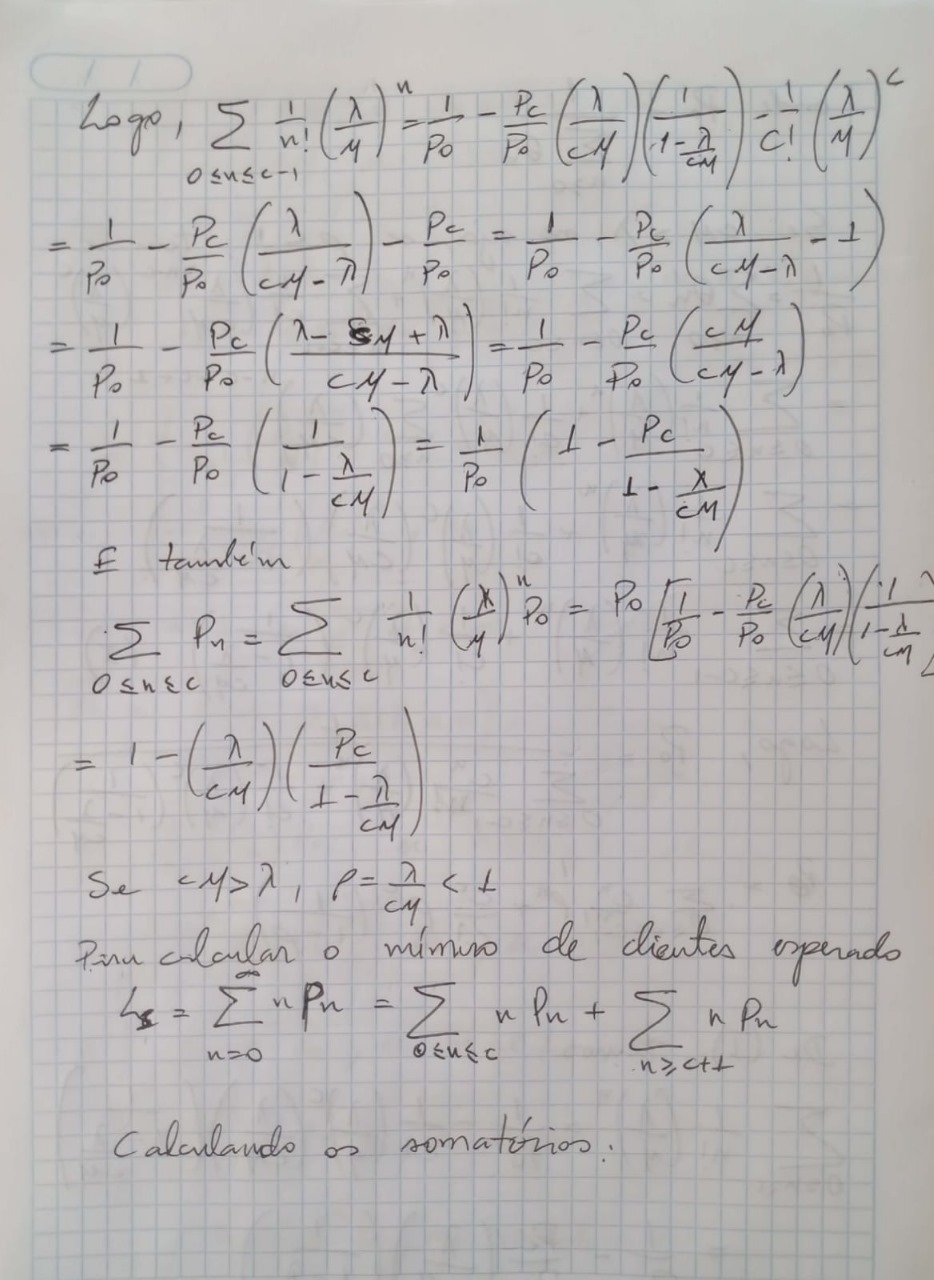 Logo, ∑_{0≤n≤c-1} 1/n! (λ/μ)^n = 1/P₀ - Pc/P₀ (λ/cμ) (1/(1-λ/cμ)) - 1/c! (λ/μ)^c
= 1/P₀ - Pc/P₀ (λ/(cμ-λ)) - Pc/P₀ = 1/P₀ - Pc/P₀ (λ/(cμ-λ) - 1)
= 1/P₀ - Pc/P₀ ((λ - cμ + λ)/(cμ-λ)) = 1/P₀ - Pc/P₀ (cμ/(cμ-λ))
= 1/P₀ - Pc/P₀ (1/(1-λ/cμ)) = 1/P₀ (1 - Pc/(1-λ/cμ))
E também
∑_{0≤n≤c} Pn = ∑_{0≤n≤c} 1/n! (λ/μ)^n P₀ = P₀ [1/P₀ - Pc/P₀ (λ/cμ) (1/(1-λ/cμ))]
= 1 - (λ/cμ) (Pc/(1-λ/cμ))
Se cμ > λ, ρ = λ/cμ < 1
Para calcular o número de clientes esperado
Ls = ∑_{n=0}^∞ n Pn = ∑_{0≤n≤c} n Pn + ∑_{n≥c+1} n Pn
Calculando os somatórios: